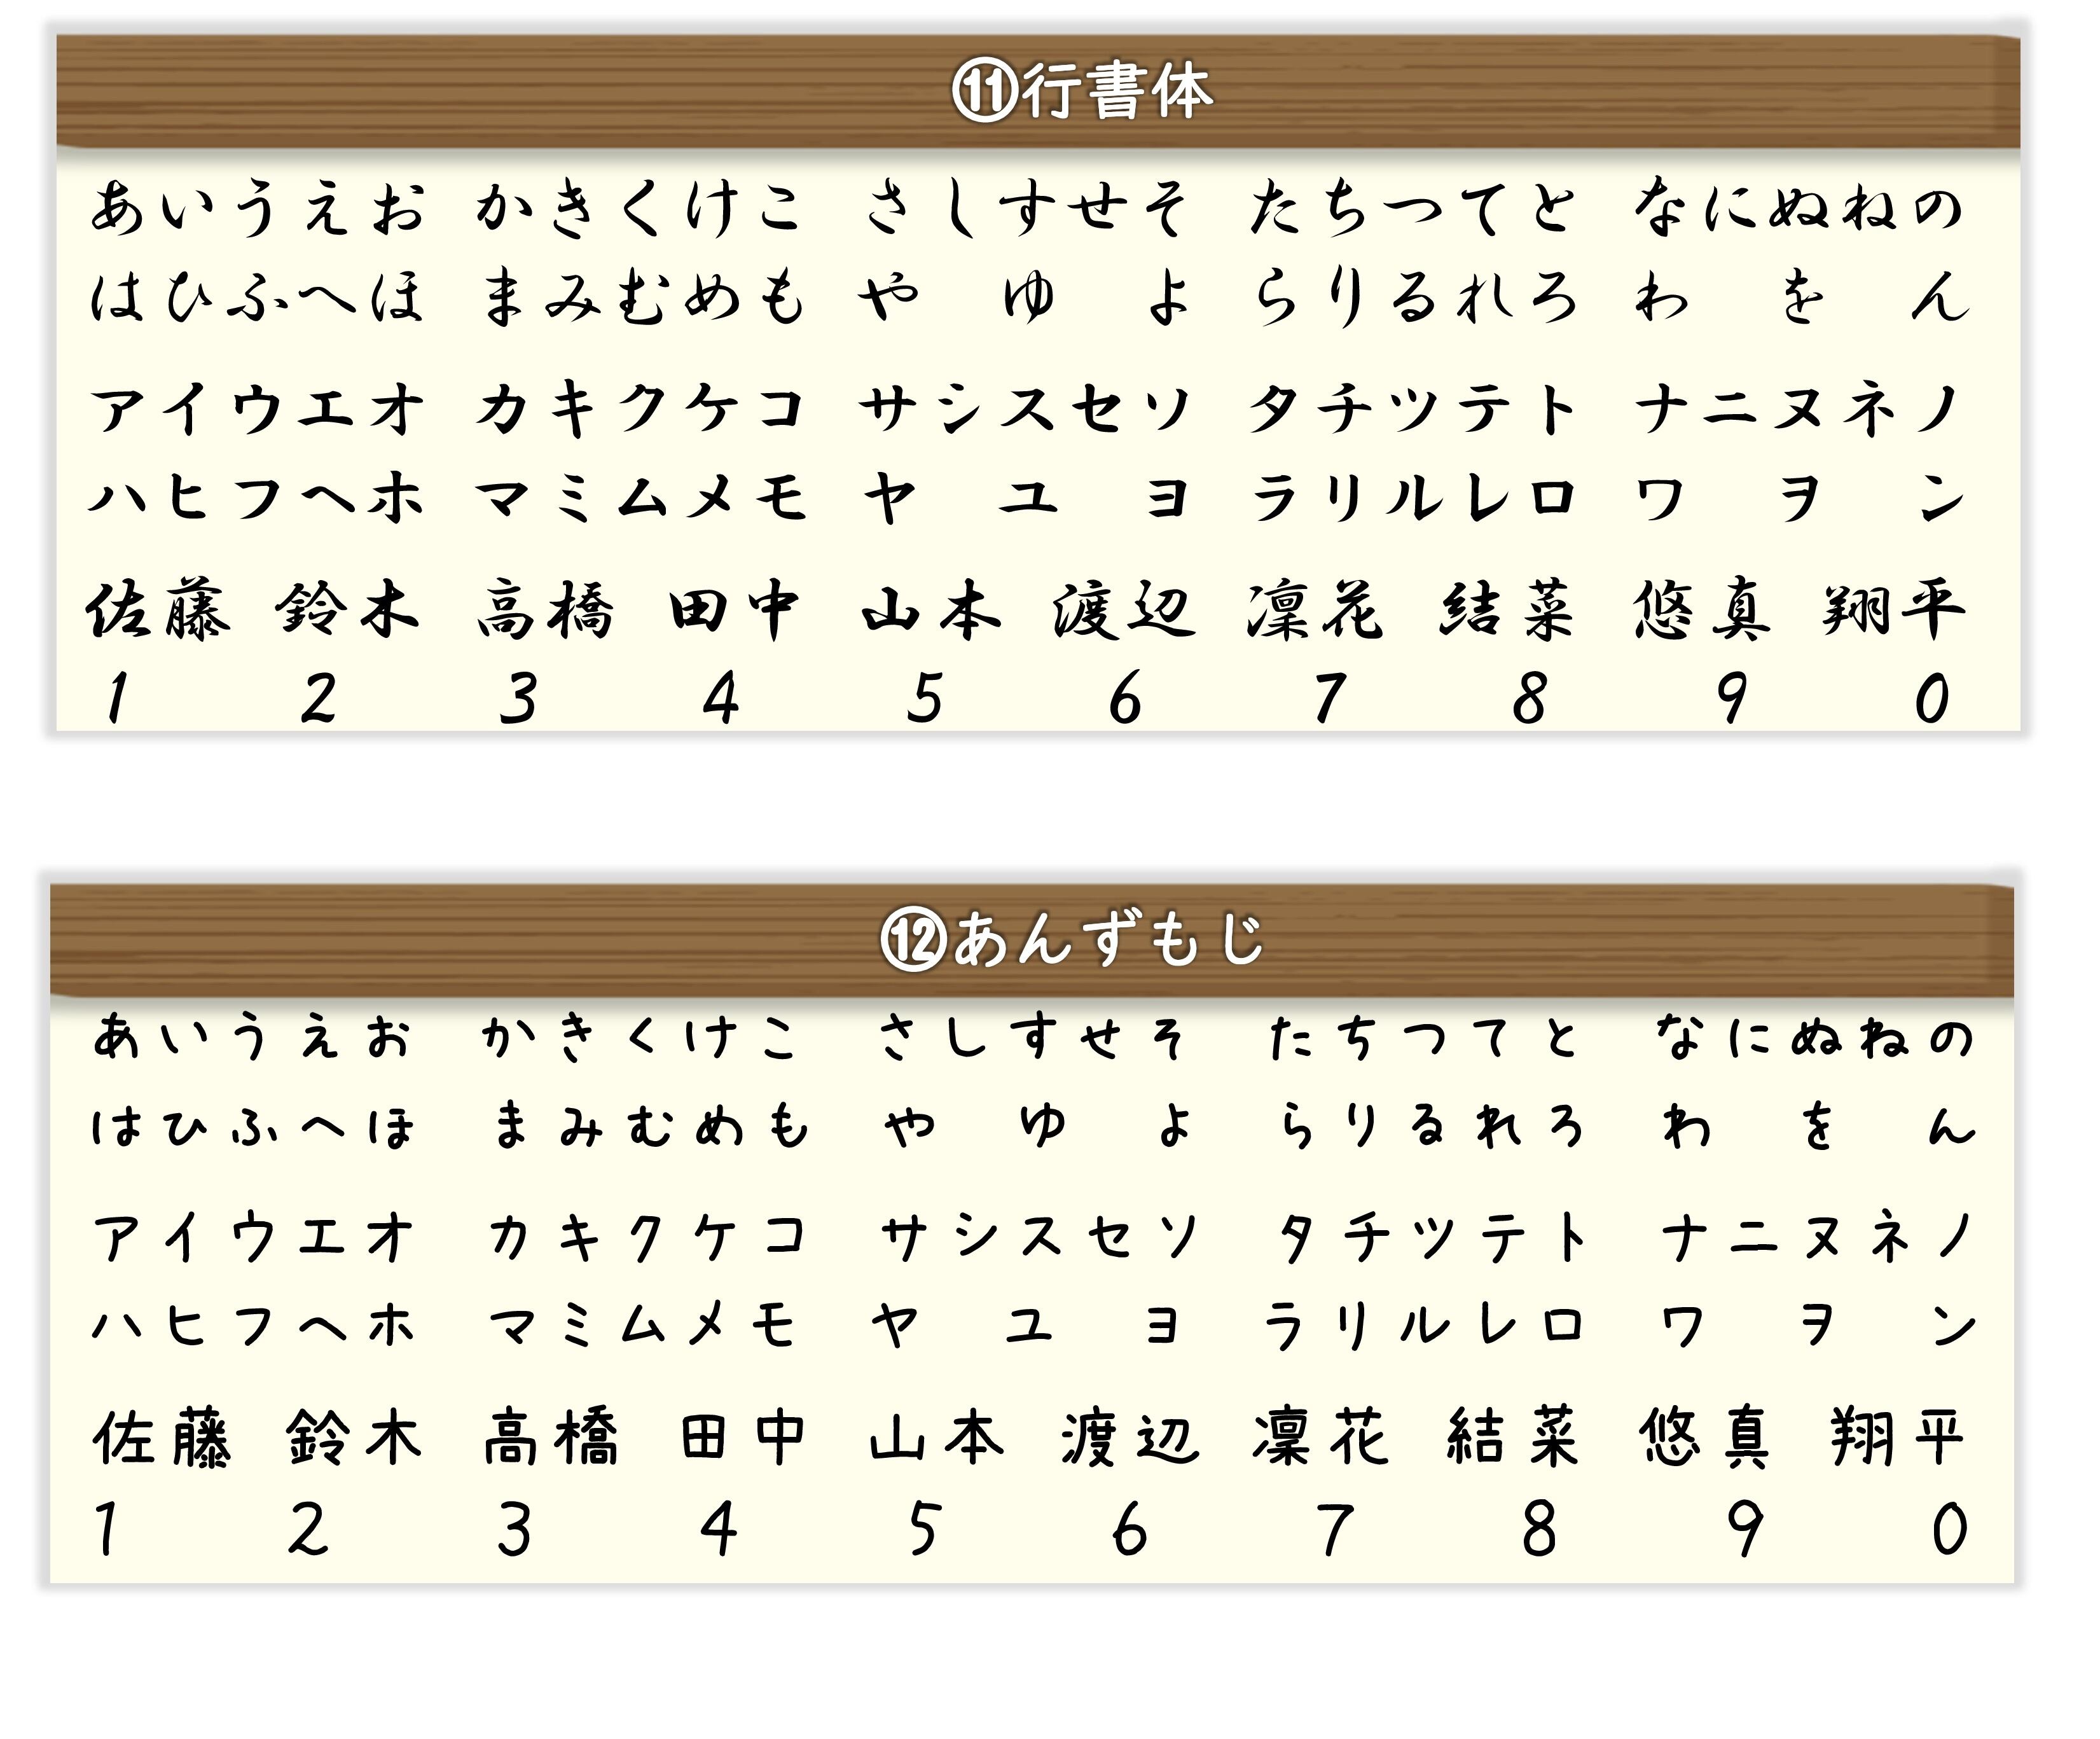 ⑪行書体
あいうえお かきくけこ さしすせそ たちつてと なにぬねの
はひふへほ まみむめも や ゆ よ らりるれろ わ を ん
アイウエオ カキクケコ サシスセソ タチツテト ナニヌネノ
ハヒフヘホ マミムメモ ヤ ユ ヨ ラリルレロ ワ ヲ ン
佐藤 鈴木 高橋 田中 山本 渡辺 凜花 結菜 悠真 翔平
1 2 3 4 5 6 7 8 9 0
⑫あんずもじ
あいうえお かきくけこ さしすせそ たちつてと なにぬねの
はひふへほ まみむめも や ゆ よ らりるれろ わ を ん
アイウエオ カキクケコ サシスセソ タチツテト ナニヌネノ
ハヒフヘホ マミムメモ ヤ ユ ヨ ラリルレロ ワ ヲ ン
佐藤 鈴木 高橋 田中 山本 渡辺 凜花 結菜 悠真 翔平
1 2 3 4 5 6 7 8 9 0